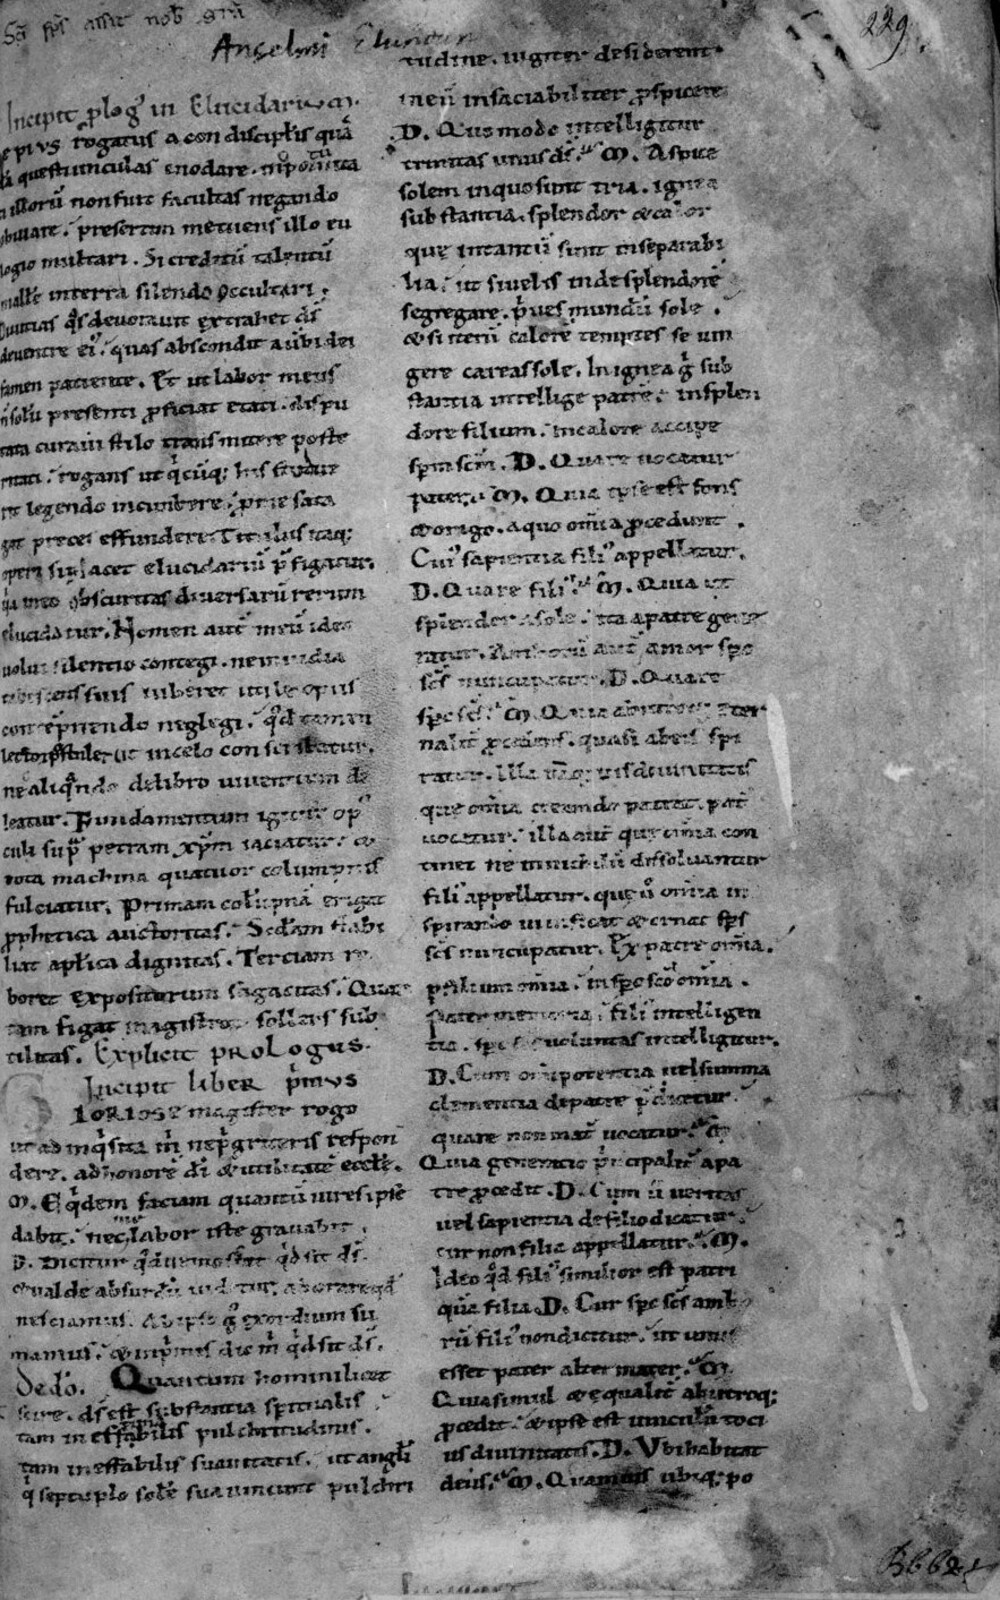 Sc̄i sp̄s assit nob̄ grā
Anselmi Elucidar
229.
Incipit ꝓlog᷒ in Elucidariū
epius rogatus a con discipl̄is quā
questiunculas enodare. inportuna
illorū non fuit facultas negando
obviare. presertim metuens illo eu
logio multari. Si creditū talentū
mallē in terra silendo occultari.
Divitias q̄s devoravit extrahet dī
de ventre ei᷒. quas abscondit avibi dei
famen patiente. Et ut labor meus
n̄ solū presenti ꝓficiat etati. dispu
tata curavi stilo transmittere poste
ritati. rogans ut q̄cūq; his studue
rit legendo incumbere. pro me sata
gat preces effundere. Titulus itaq;
operi si placet elucidariū p̄figatur.
q̄a in eo obscuritas diversarū rerum
elucidatur. Nomen aut̄ meū ideo
volui silentio contegi. ne invidia
tabescens suis iuberet utile opus
contēpnendo neglegi. q̄d tamen
lector postulet ut in celo conscribatur.
ne aliq̄ndo de libro viventium de
leatur. Fundamentum igitur op᷒
culi sup̄ petram xp̄m iaciatur. &
tota machina quatuor columpnis
fulciatur. Primam colūpnā erigat
ꝓphetica auctoritas. Sēdam stabi
liat apl̄ica dignitas. Terciam ro
boret expositorum sagacitas. Quar
tam figat magistrorū sollers sub
tilitas. Explicit proLogus.
Incipit liber p̄mus
Gloriose magister rogo
ut ad inq̄sita m̄ ne pigriteris respon
dere. ad honorē dī & utilitatē eccl̄e.
M. Eq̄dem faciam quantū vires ipse
dabit. nec me labor iste gravabit.
D. Dicitur q̄d nemo sciat q̄d sit ds̄.
& valde absurdū videtur. adorare q̄d
nesciamus. Ab ipso g̊ exordium su
mamus. & inp̄mis dic m̄ q̄d sit ds̄.
De dō. Quantum homini licet
scire. ds̄ est substantia spiritualis
tam inestimabilis pulchritudinis.
tam ineffabilis suavitatis. ut angl̄i
q̄ septuplo solē sua vincunt pulchri
tudine. iugiter desiderent
in eū insaciabiliter ꝓspicere
D. Quomodo intelligitur
trinitas unus ds̄. M. Aspice
solem in quo sunt tria. ignea
substantia. splendor & calor
que in tantū sunt inseparabi
lia. ut si velis inde splendorē
segregare. p̄ves mundū sole.
& si iterū calorē temptes se iun
gere careas sole. In ignea g̊ sub
stantia intellige patrē. in splen
dore filium. in calore accipe
sp̄m sc̄m. D. Quare vocatur
pater. M. Quia ipse est fons
& origo. a quo om̄ia ꝓcedunt.
Cui᷒ sapientia fili᷒ appellatur.
D. Quare fili᷒. M. Quia ut
splendor a sole. ita a patre gene
ratur. Amborū aut̄ amor sp̄c
sc̄s nuncupatur. D. Quare
sp̄c sc̄s. M. Quia ab utroq; eter
nalit̄ ꝓcedens. quasi ab eis spi
ratur. Illa nāq; vis divinitatis
que om̄ia creando patrat. pat̄
vocatur. illa aut̄ que om̄ia con
tinet ne in nichilū dissolvantur
fili᷒ appellatur. que ů om̄ia in
spirando vivificat & ornat sp̄s
sc̄s nuncupatur. Ex patre om̄ia.
p filium om̄ia. in sp̄o sc̄o om̄ia.
Pater memoria. fili᷒ intelligen
tia. sp̄c sc̄s voluntas intelligitur.
D. Cum om̄ipotentia vel summa
clementia de patre p̄dicetur
quare non mat̄ vocatur. M.
Quia generatio p̄ncipalit̄ a pa
tre ꝓcedit. D. Cum ů veritas
vel sapientia de filio dicatur.
cur non filia appellatur. M.
Ideo q̄d fili᷒ similior est patri
quā filia. D. Cur sp̄c sc̄s ambo
rū fili᷒ non dicitur. ut unus
esset pater alter mater. M.
Quia simul & equalit̄ ab utroq;
ꝓcedit. & ipse est vinculū toci
us divinitatis. D. Ubi habitat
deus. M. Quamvis ubiq; po